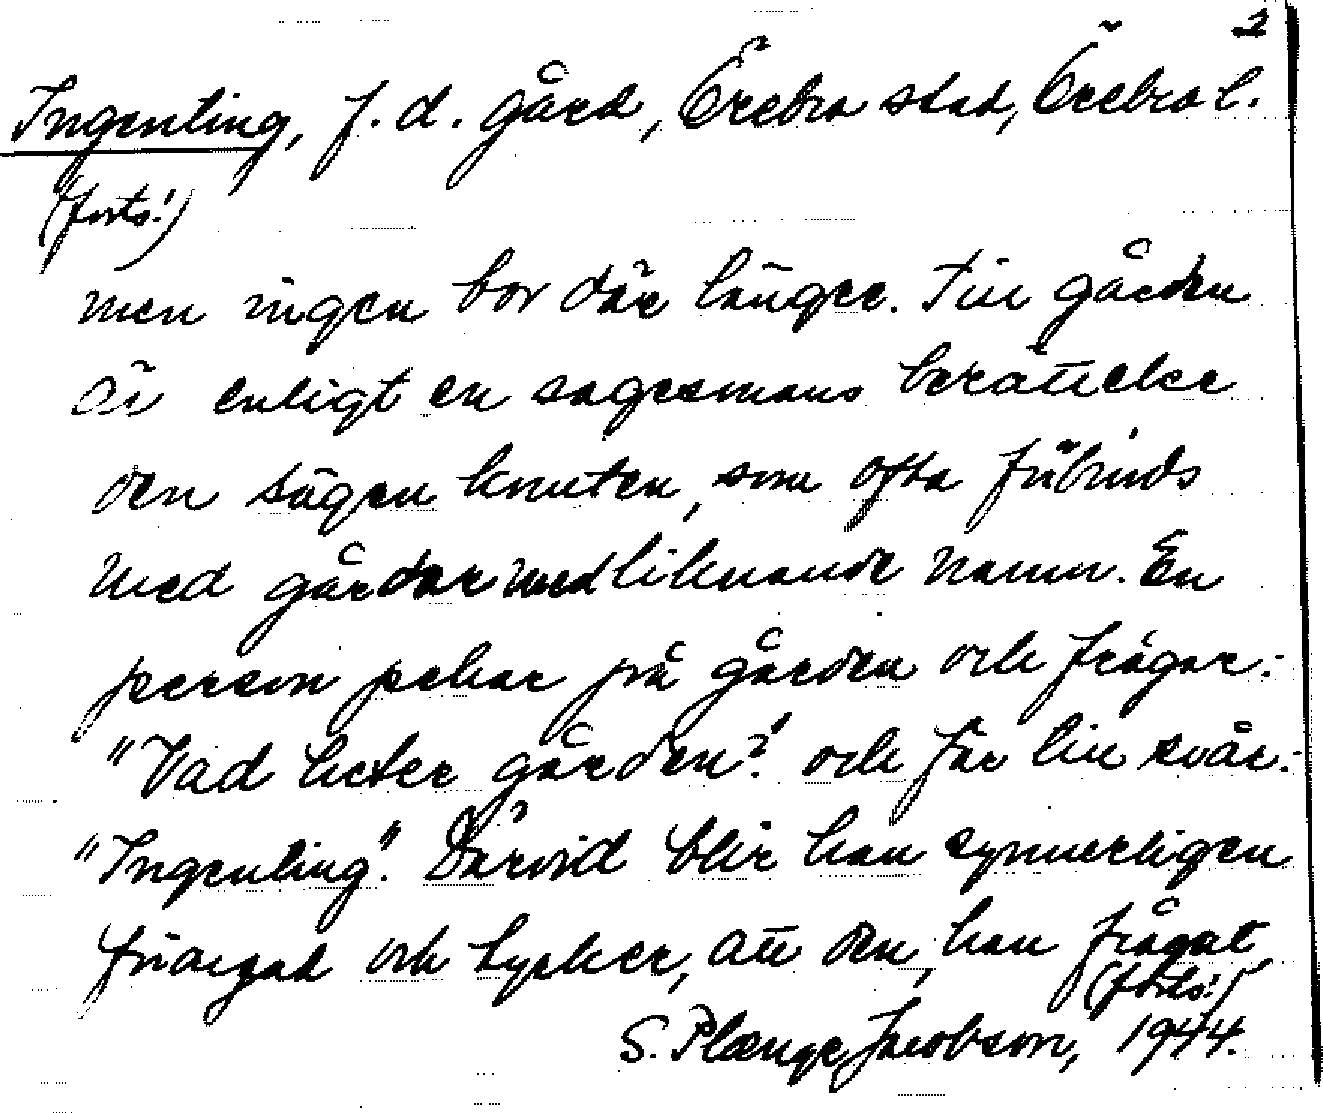 2
Ingenting, f. d. gård, Örebro stad, Örebro l.
(forts.)
men ingen bor där längre. Till gården
är enligt en sagesmans berättelse
den sägen knuten, som ofta förbinds
med gårdar med liknande namn. En
person pekar på gården och frågar:
"Vad heter gården?" och får till svar:
"Ingenting". Därvid blir han synnerligen
förargad och tycker, att den, han frågat,
(forts.)
S. Plænge Jacobson, 1944.